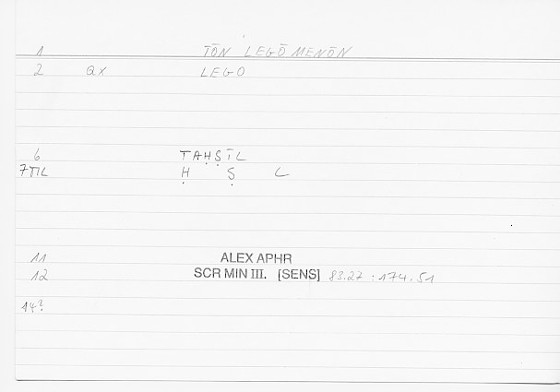 1 TŌN LEGŌMENŌN
2 QX LEGO
6 TAḤṢĪL
7 TIL Ḥ Ṣ L
11 ALEX APHR
12 SCR MIN III. [SENS] 83.27 : 174.51
14?